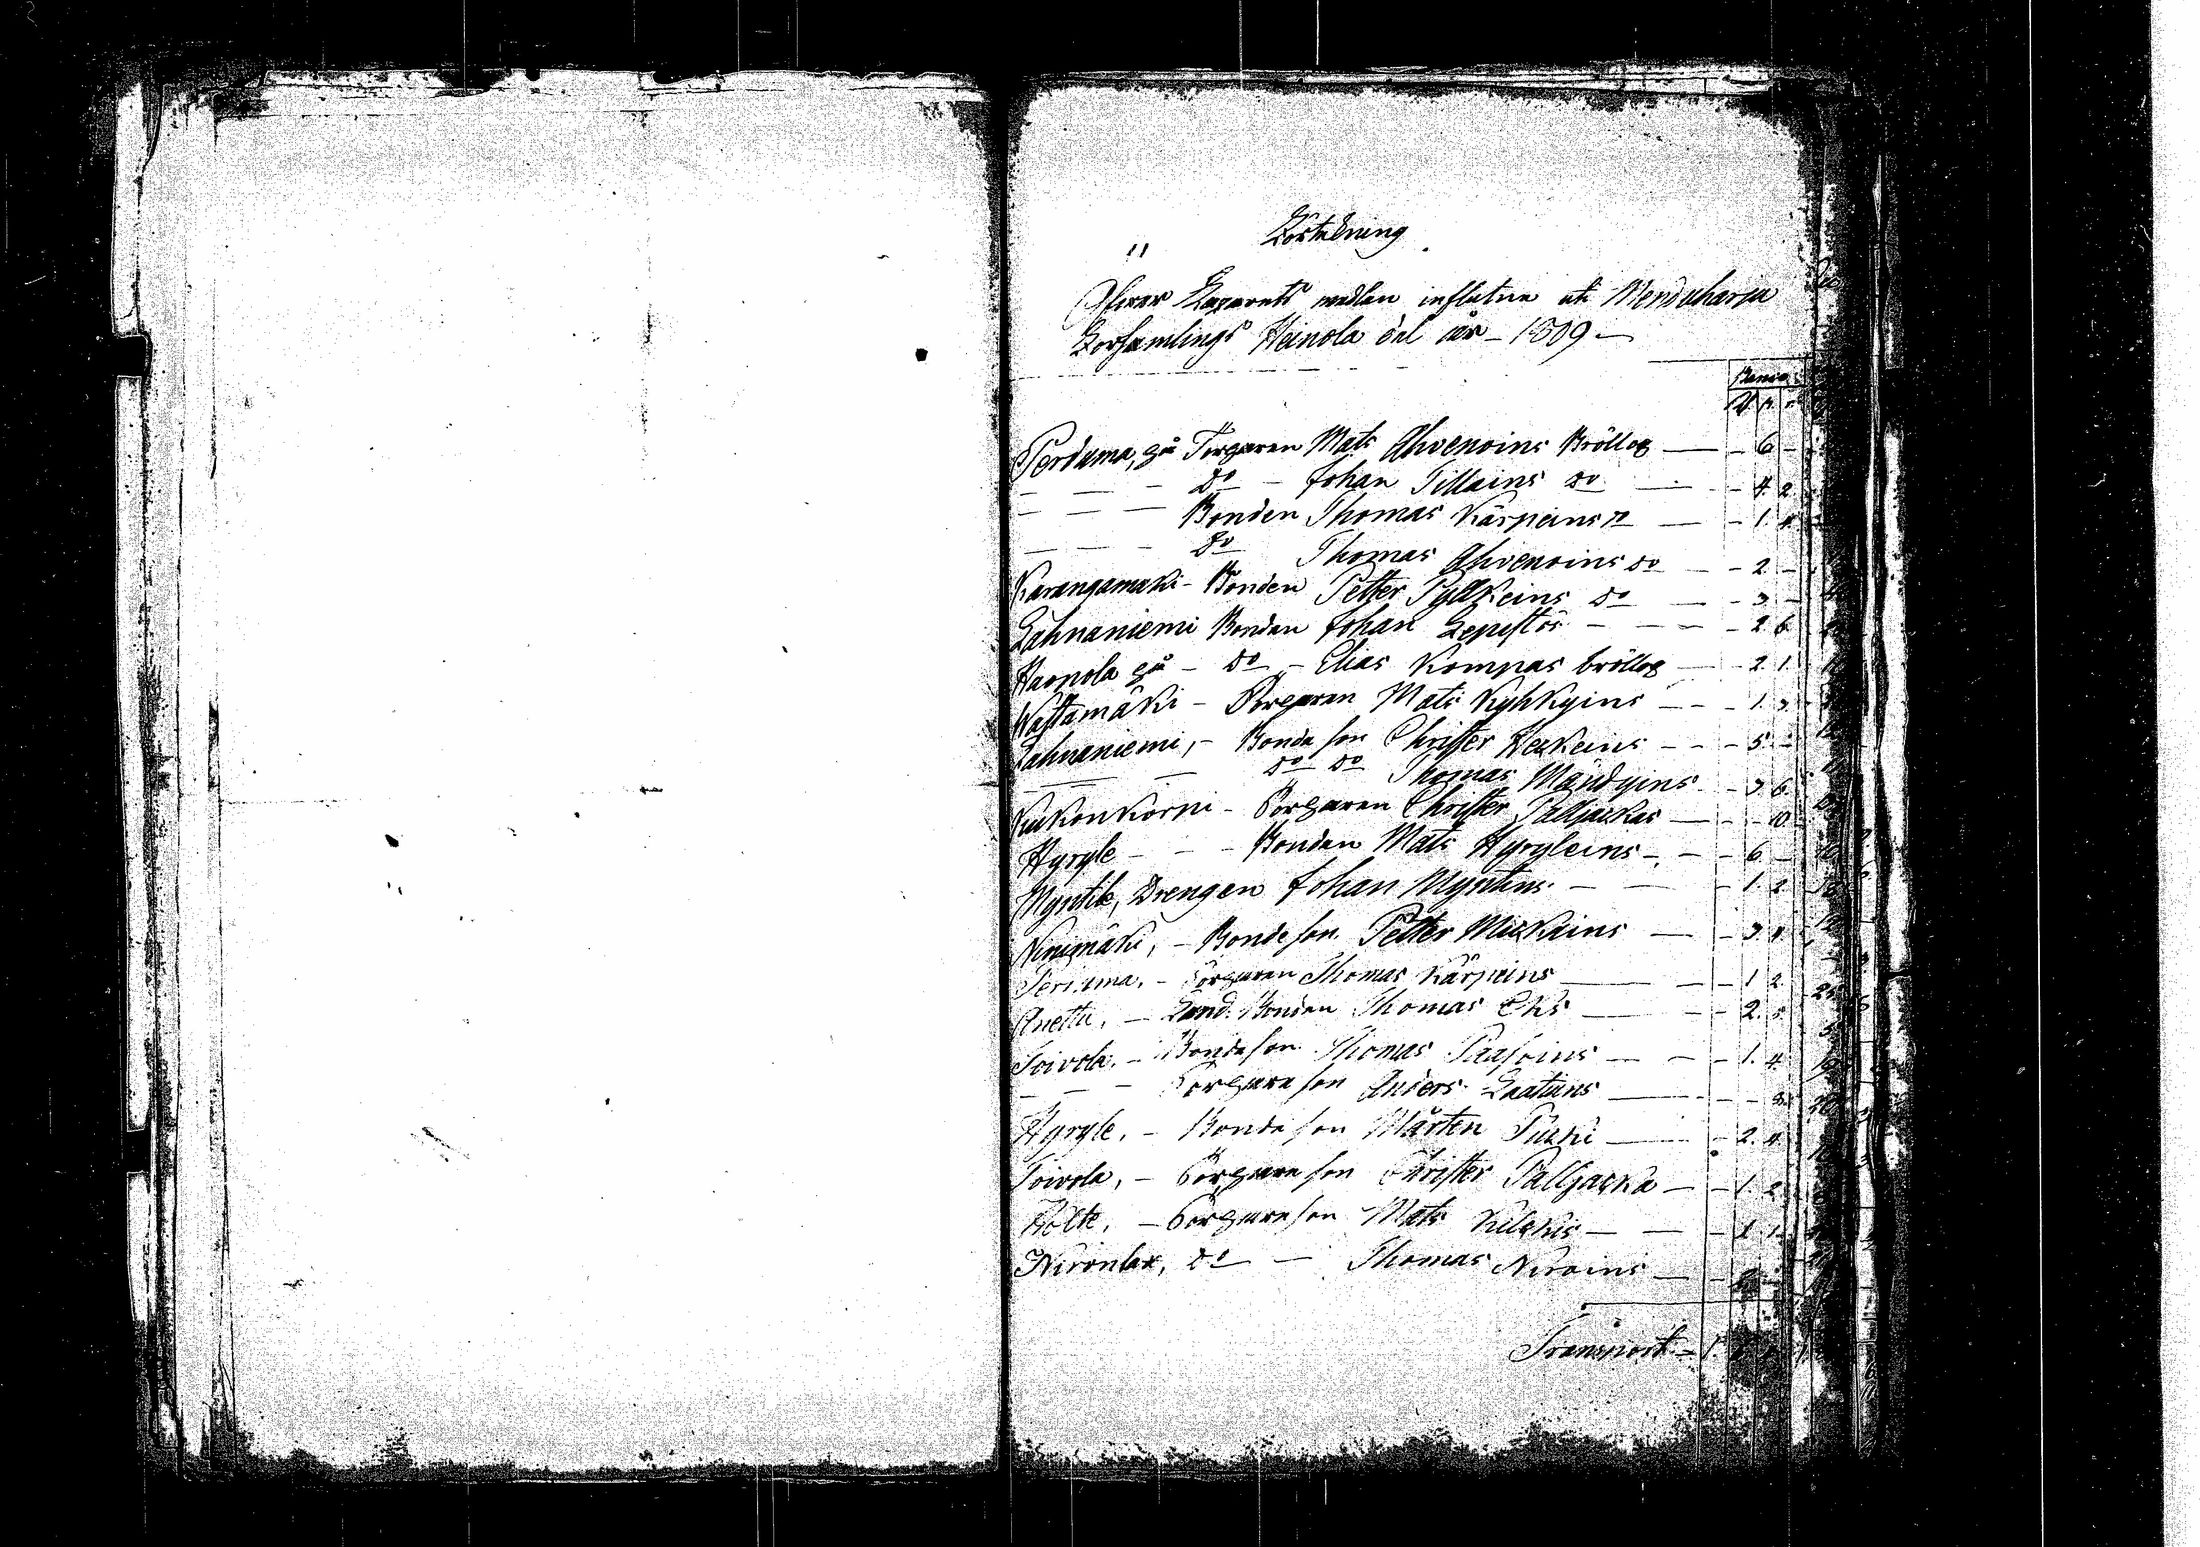 Förtekning
Öfwer Lazarets medlen influtne uti Menduharju
Församlings Heinola del år 1809
Banco
Perduma, på Torparen Mats Ahvenoins Bröllop — 6 —
— — — Do — Johan Tillains Do — 4. 2.
— — — Bonden Thomas Kärpeins Do — 1. 4.
— — — Do Thomas Ahvenoins Do — 2. —
Karangamäki - Bonden Petter Pylkeins Do — 3 —
Lahnaniemi Bonden Johan Lepistös — 2. 6.
Haopola på — Do — Elias Kompas bröllop — 2. 1.
Wastamäki — Torparen Mats Kyhkyins — 1. 3.
Lahnaniemi, — Bonde son Christer Heikeins — 5. —
— — Do Do Thomas Mändyins — 3. 6.
Kukonkorpi — Torparen Christer Palljackas — 10.
Hyryle — — Bonden Mats Hyryleins — 6. —
Myntile, Drengen Johan Myntins — 1. 2.
Ninimäki, — Bonde son Petter Mickeins — 3. 4.
Perduma, — Torparen Thomas Kärpeins — 1. 2.
— Land Bonden Thomas — 2.
Toivola, — Bonde son Thomas Paasoins — 1. 4.
— — Torpare son Anders Laatuns — 8.
Hyryle, — Bonde son Mårten — 2. 4.
Toivola, — Torpare son Christer Palljacka — 1. 2.
— Torpare son Mats — 1. 1.
Nironlax, Do — Thomas Niroins —
Transport — 1.